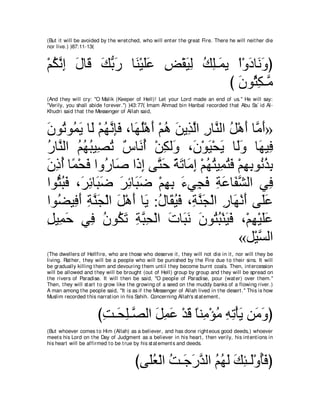 (But it will be avoided by the wretched, who will enter the great Fire. There he will neither die
nor live.) )87:11-13(
﴿وَنَادَوْاْ يمَـلِكُ لِيَقْضِ عَلَيْنَا رَبُّكَ قَالَ إِنَّكُمْ
مَّـكِثُونَ ﴾
(And they will cry: "O Malik (Keeper of Hell)! Let your Lord made an end of us." He will say:
"Verily, you shall abide forever.") )43:77( Imam Ahmad bin Hanbal recorded that Abu Sa`id Al-
Khudri said that the Messenger of Allah said,
«أَمَّا أَهْلُ النَّارِ الَّذِينَ هُمْ أَهْلُهَا، فَإِنَّهُمْ لَا يَمُوتُونَ
فِيهَا وَلَا يَحْيَوْنَ، وَلكِنْ أُنَاسٌ تُصِيبُهُمُ النَّارُ
بِذُنُوبِهِمْ فَتُمِيتُهُمْ إِمَاتَةً حَتَّى إِذَا صَارُوا فَحْمًا أُذِنَ
فِي الشَّفَاعَةِ فَجِيءَ بِهِمْ ضَبَائِرَ ضَبَائِرَ، فَبُثُّوا
عَلَى أَنْهَارِ الْجَنَّةِ، فَيُقَالُ: يَا أَهْلَ الْجَنَّةِ أَفِيضُوا
عَلَيْهِمْ، فَيَنْبُتُونَ نَبَاتَ الْحِبَّةِ تَكُونُ فِي حَمِيلِ
السَّيْل»
(The dwellers of Hellfire, who are those who deserve it, they will not die in it, nor will they be
living. Rather, they will be a people who will be punished by the Fire due to their sins. It will
be gradually killing them and devouring them until they become burnt coals. Then, intercession
will be allowed and they will be brought (out of Hell) group by group and they will be spread on
the rivers of Paradise. It will then be said, "O people of Paradise, pour (water) over them."
Then, they will start to grow like the growing of a seed on the muddy banks of a flowing river.)
A man among the people said, "It is as if the Messenger of Allah lived in the desert." This is how
Muslim recorded this narration in his Sahih. Concerning Allah's statement,
﴿وَمَن يَأْتِهِ مُؤْمِناً قَدْ عَمِلَ الصَّـلِحَـتِ﴾
(But whoever comes to Him (Allah) as a believer, and has done righteous good deeds,) whoever
meets his Lord on the Day of Judgment as a believer in his heart, then verily, his intentions in
his heart will be affirmed to be true by his statements and deeds.
﴿فَأُوْلَـئِكَ لَهُمُ الدَّرَجَـتُ الْعُلَى﴾